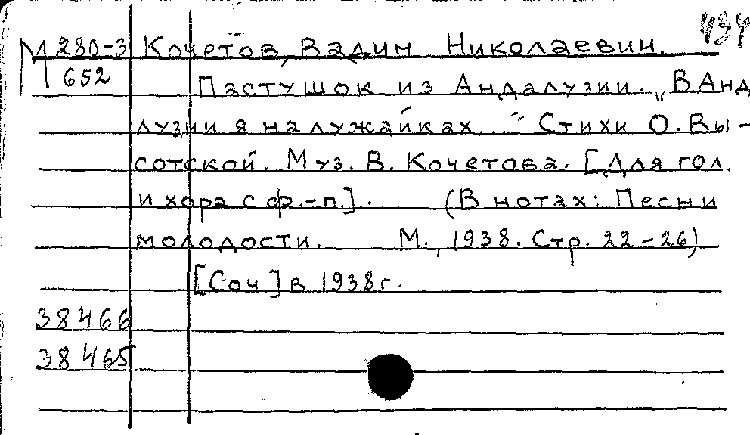 434
М 280-3 Кочетов, Вадим Николаевич.
652 Пастушок из Андалузии. „В Анд
лузии я на лужайках..." Стихи О. Вы-
сотской. Муз. В. Кочетова. [Для гол.
и хора с ф.-п.]. (В нотах: Песни
молодости. М., 1938. Стр. 22-26)
[Соч] в 1938г.
38466
38465